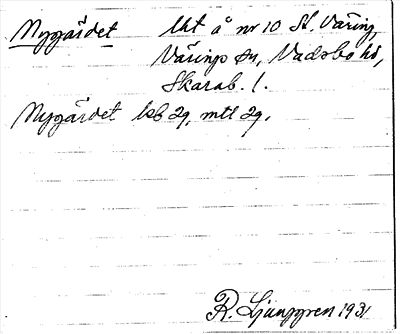 Nygärdet Uht å nr 10 St. Väring,
Värings sn, Vadsbo hd,
Skarab. l.
Nygärdet ksb 29, mtl 29.
R. Ljunggren 1931